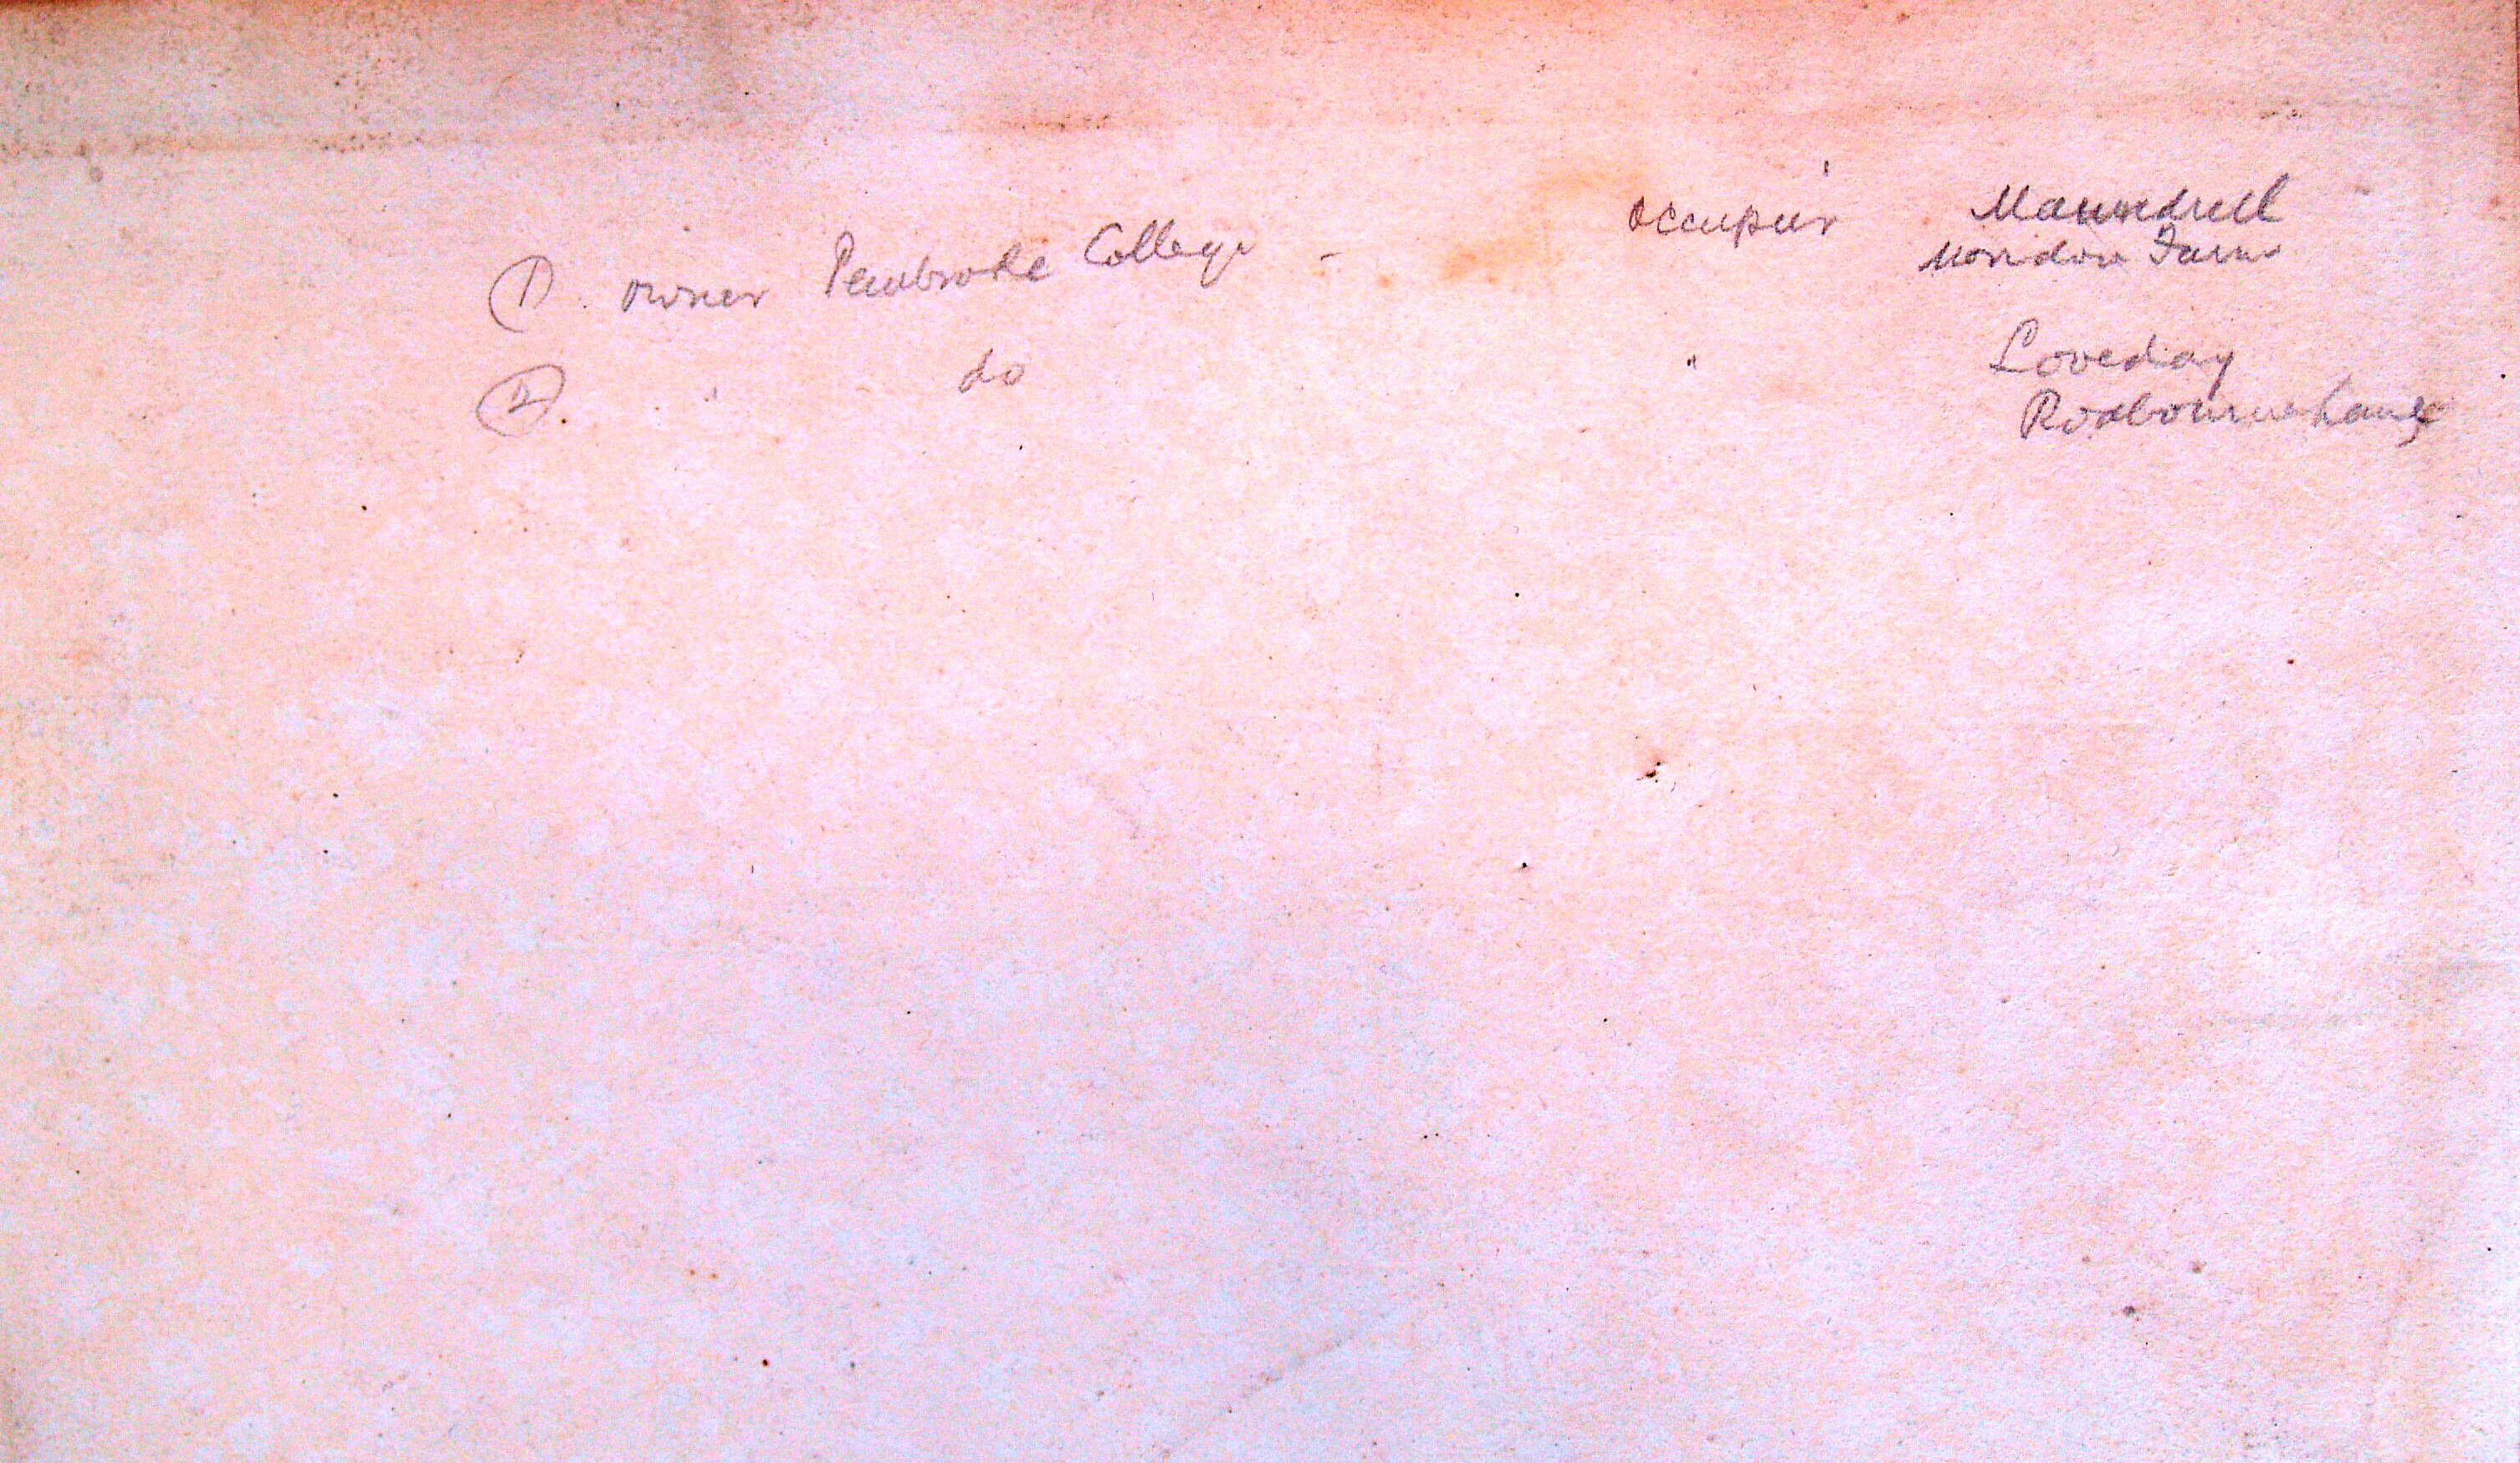 ① owner Pembroke College - Occupier Maundrell
Farm
② " do " Loveday
Rodbourne Lane